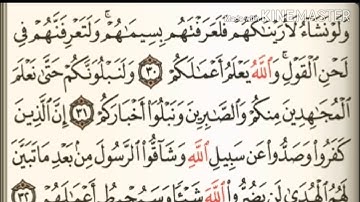 MADE WITH
KINEMASTER
وَلَوْ نَشَآءُ لَأَرَيْنَٰكَهُمْ فَلَعَرَفْتَهُم بِسِيمَٰهُمْ ۚ وَلَتَعْرِفَنَّهُمْ فِى
لَحْنِ ٱلْقَوْلِ ۚ وَٱللَّهُ يَعْلَمُ أَعْمَٰلَكُمْ ٣٠ وَلَنَبْلُوَنَّكُمْ حَتَّىٰ نَعْلَمَ
ٱلْمُجَٰهِدِينَ مِنكُمْ وَٱلصَّٰبِرِينَ وَنَبْلُوَا۟ أَخْبَارَكُمْ ٣١ إِنَّ ٱلَّذِينَ
كَفَرُوا۟ وَصَدُّوا۟ عَن سَبِيلِ ٱللَّهِ وَشَآقُّوا۟ ٱلرَّسُولَ مِنۢ بَعْدِ مَا تَبَيَّنَ
لَهُمُ ٱلْهُدَىٰ لَن يَضُرُّوا۟ ٱللَّهَ شَيْـًٔا وَسَيُحْبِطُ أَعْمَٰلَهُمْ ٣٢